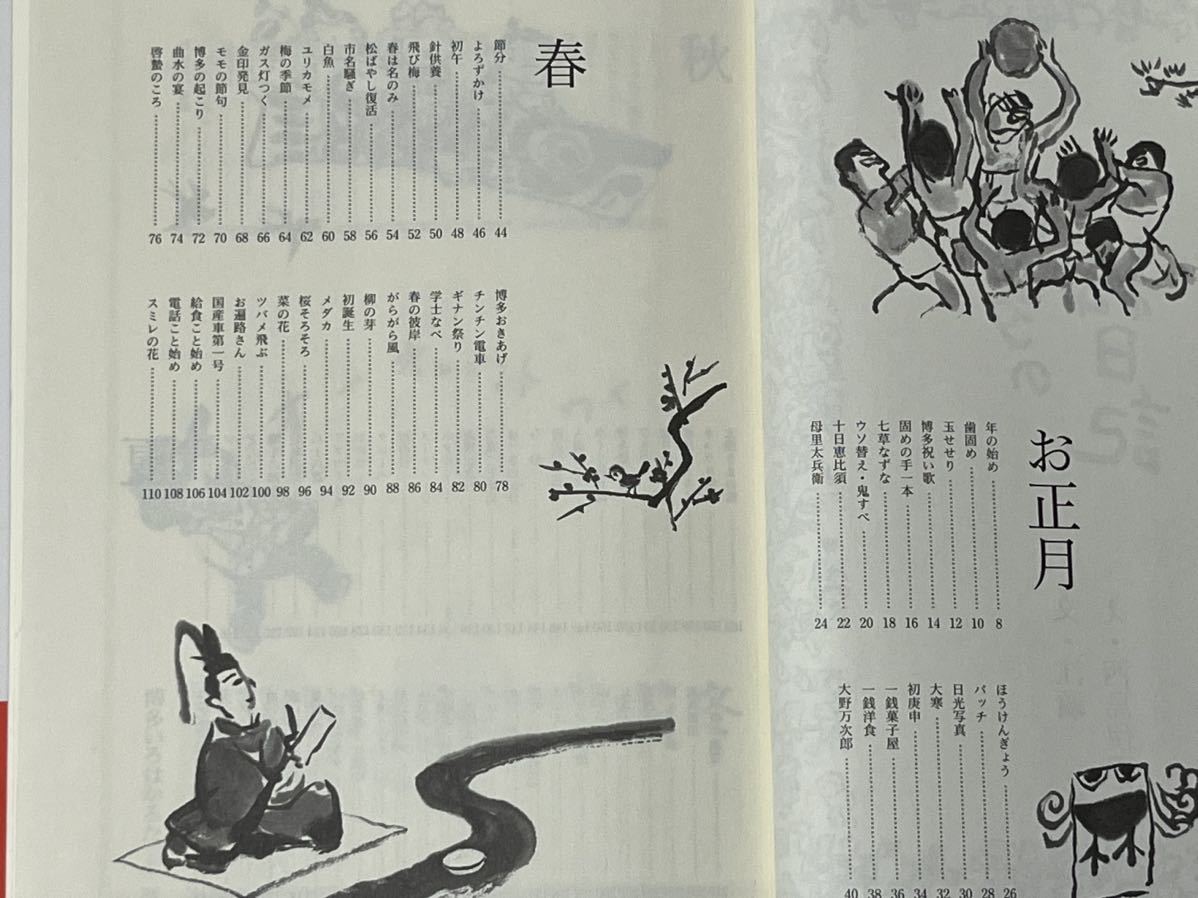 お正月
年の始め 8
歯固め 10
玉せせり 12
博多祝い歌 14
固めの手一本 16
七草なずな 18
ウソ替え・鬼すべ 20
十日恵比須 22
母里太兵衛 24
ほうけんぎょう 26
パッチ 28
日光写真 30
大寒 32
初庚申 34
一銭菓子屋 36
一銭洋食 38
大野万次郎 40
春
節分 44
よろずかけ 46
初午 48
針供養 50
飛び梅 52
春は名のみ 54
松ばやし復活 56
市名騒ぎ 58
白魚 60
ユリカモメ 62
梅の季節 64
ガス灯つく 66
金印発見 68
モモの節句 70
博多の起こり 72
曲水の宴 74
啓蟄のころ 76
博多おきあげ 78
チンチン電車 80
ギナン祭り 82
学士なべ 84
春の彼岸 86
がらがら風 88
柳の芽 90
初誕生 92
メダカ 94
桜そろそろ 96
菜の花 98
ツバメ飛ぶ 100
お遍路さん 102
国産車第一号 104
給食こと始め 106
電話こと始め 108
スミレの花 110